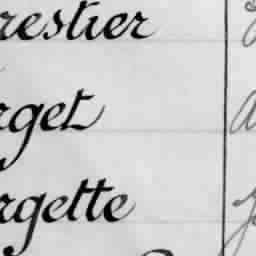 restier
rget
rgette